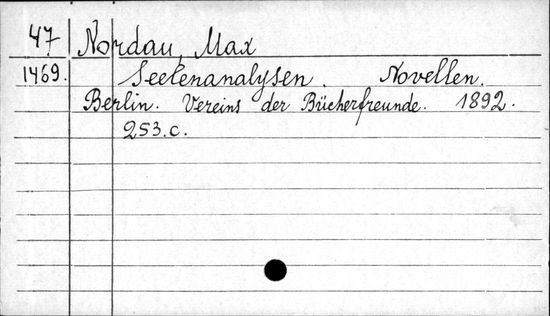 47 Nordau, Max
1469. Seelenanalysen. Novellen.
Berlin. Vereins der Bücherfreunde. 1892.
253.c.